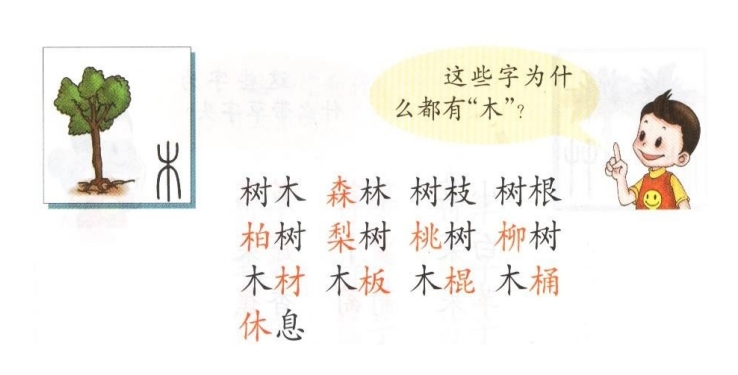 这些字为什
么都有“木”?
树木 森林 树枝 树根
柏树 梨树 桃树 柳树
木材 木板 木棍 木桶
休息